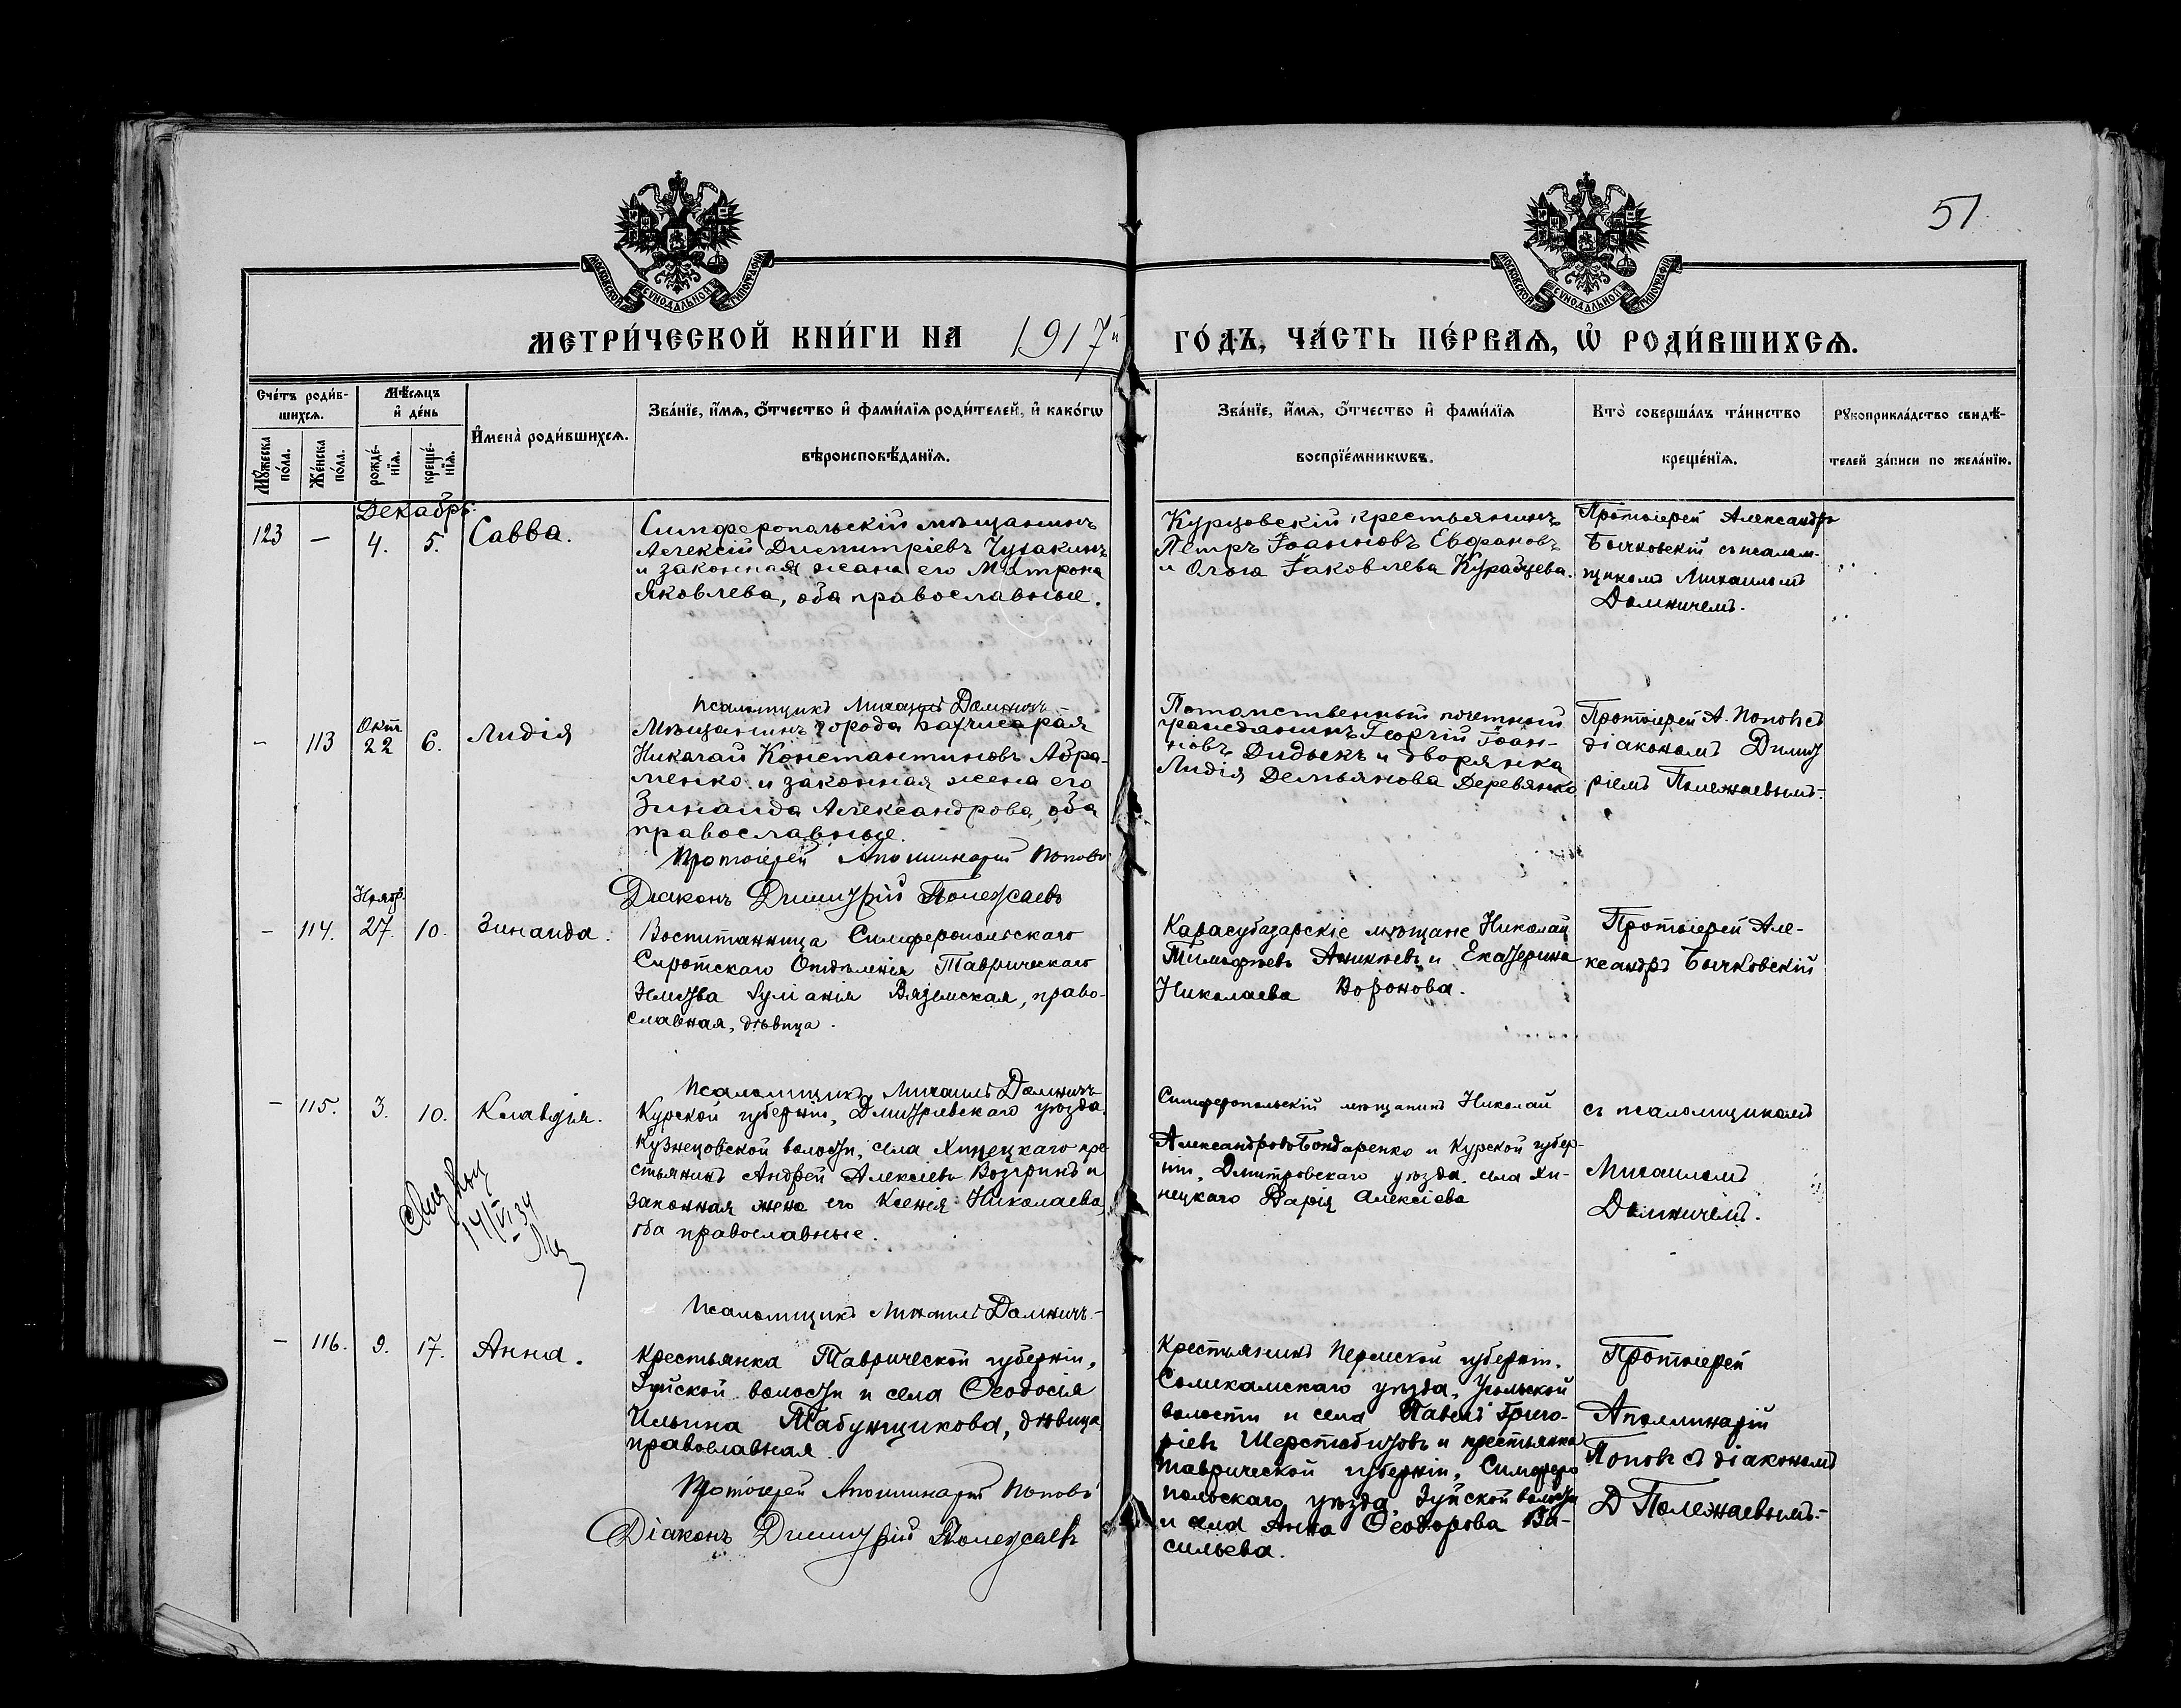 51
МОСКОВСКОЙ СѴНОДАЛЬНОЙ ТИПОГРАФІИ
МОСКОВСКОЙ СѴНОДАЛЬНОЙ ТИПОГРАФІИ
МЕТРИ́ЧЕСКОЙ КНИ́ГИ НА 1917й ГО́ДЪ, ЧА́СТЬ ПЕ́РВАѦ, Ѡ РОДИ́ВШИХСѦ.
Сче́тъ роди́в-
шихсѧ.
Мꙋ́жеска по́ла.
Же́нска по́ла.
Мѣ́сѧцъ
и҆ де́нь
рожде́-
нїѧ.
креще́-
нїѧ.
И҆мена̀ роди́вшихсѧ.
Зва́нїе, и҆́мѧ, ѻ҆́тчество и҆ фами́лїѧ роди́телей, и҆ како́гѡ
вѣроисповѣ́данїѧ.
Зва́нїе, и҆́мѧ, ѻ҆́тчество и҆ фами́лїѧ
воспрїе́мникѡвъ.
Кто̀ соверша́лъ та́инство
креще́нїѧ.
Рꙋкоприкла́дство свидѣ́-
телей за́писи по жела́нїю.
Декабрь.
123 — 4. 5. Савва.
Симферопольскій мѣщанинъ
Алексій Димитріевъ Чудакинъ
и законная жена его Матрона
Яковлева, оба православные.
Псаломщикъ Михаилъ Домничъ
Курцовскій крестьянинъ
Петръ Іоанновъ
и Ольга Іаковлева
Протоіерей Александръ
Бычковскій съ псалом-
щикомъ Михаиломъ
Домничемъ.
– 113 Окт. 22 6. Лидія
Мѣщанинъ города Бахчисарая
Николай Константиновъ Абра-
менко и законная жена его
Зинаида Александрова, оба
православные.
Протоіерей Аполлинарій Поповъ
Діаконъ Димитрій Полежаевъ
Потомственный почетный
гражданинъ Георгій Іоан-
новъ Дидыкъ и дворянка
Лидія Демьянова Деревянко
Протоіерей А. Поповъ съ
діакономъ Димит
ріемъ Полежаевымъ.
– 114. Ноябр. 27. 10. Зинаида.
Воспитанница Симферопольскаго
Сиротскаго Отдѣленія Таврическаго
Земства Іуліанія Вяземская, право-
славная, дѣвица.
Псаломщикъ Михаилъ Домничъ
Карасубазарскіе мѣщане Николай
Тимофеевъ Аникѣевъ и Екатерина
Николаева Воронова.
Протоіерей Але-
ксандръ Бычковскій
– 115. 3. 10. Клавдія.
14/VI 34
Курской губерніи, Дмитріевскаго уѣзда,
Кузнецовской волости, села Хинецкаго кре
стьянинъ Андрей Алексіевъ Возгринъ и
законная жена его Ксенія Николаева,
оба православные.
Псаломщикъ Михаилъ Домничъ
Симферопольскій мѣщанинъ Николай
Александровъ Бондаренко и Курской губер-
ніи, Дмитровскаго уѣзда, села Хи-
нецкаго Дарія Алексіева
съ псаломщикомъ
Михаиломъ
Домничемъ.
– 116. 9. 17. Анна.
Крестьянка Таврической губерніи,
Зуйской волости и села Ѳеодосія
Ильина Табунщикова, дѣвица,
православная.
Протоіерей Аполлинарій Поповъ
Діаконъ Димитрій Полежаевъ
Крестьянинъ Пермской губерніи,
Соликамскаго уѣзда, Усольской
волости и села Павелъ Григо-
ріевъ Шерстобитовъ и крестьянка
Таврической губерніи, Симферо
польскаго уѣзда, Зуйской волости
и села Анна Ѳеодорова Ва-
сильева.
Протоіерей
Аполлинарій
Поповъ съ діакономъ
Д Полежаевымъ.